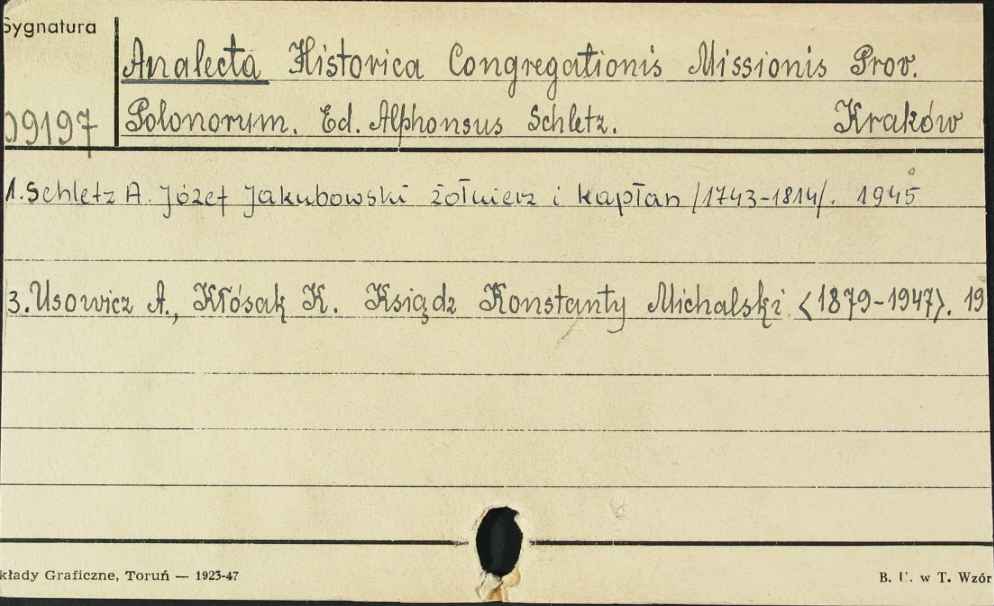 Sygnatura
Analecta Historica Congregationis Missionis Prov.
09197 Polonorum. Ed. Alphonsus Schletz. Kraków
1. Schletz A. Józef Jakubowski żołnierz i kapłan /1743-1814/. 1945
3. Usowicz A., Kłósak K. Ksiądz Konstanty Michalski <1879-1947>. 19
kłady Graficzne, Toruń — 1923-47
B. U. w T. Wzór